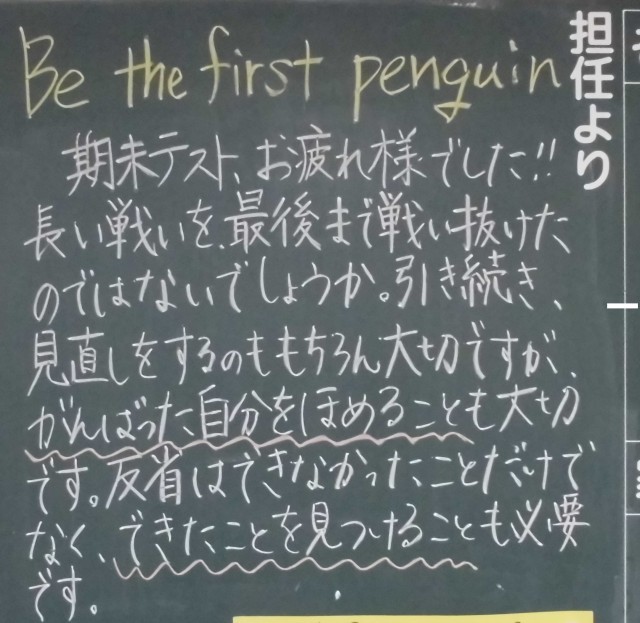 担任より
Be the first penguin
期末テスト、お疲れ様でした!!
長い戦いを、最後まで戦い抜けた
のではないでしょうか。引き続き、
見直しをするのももちろん大切ですが、
がんばった自分をほめることも大切
です。反省はできなかったことだけで
なく、できたことを見つけることも必要
です。